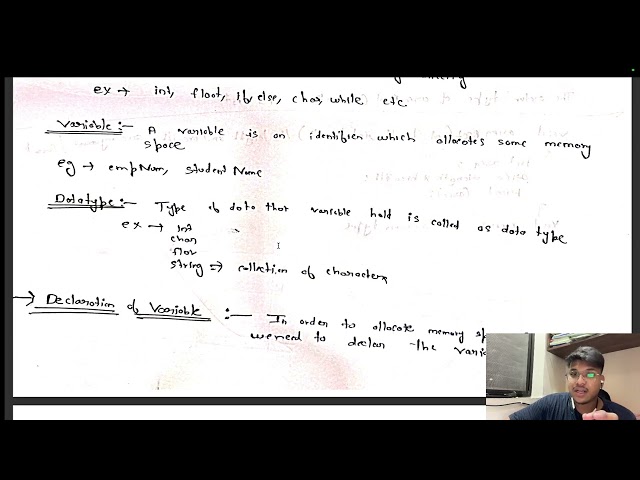 ex → int, float, if else, char, while etc
Variable :- A variable is an identifier which allocates some memory
space
eg → empNum, student Name
Datatype :- Type of data that variable hold is called as data type
ex → int
char
flot
string => collection of characters
→ Declaration of Variable :- In order to allocate memory sp
we need to declar the varia